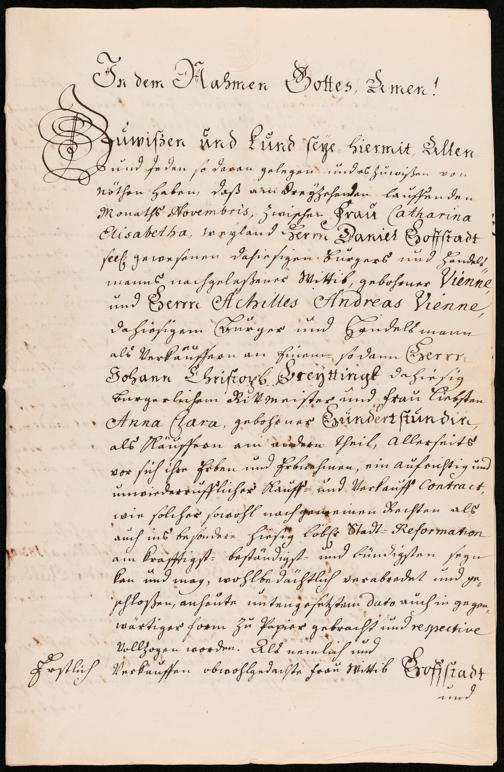 In dem Nahmen Gottes, Amen!
Zuwißen und kund seye hiermit, Allen
und Jeden so daran gelegen und es zuwißen von
nöthen haben, daß am dreyzehenden lauffenden
Monaths Novembris, zwischen Frau Catharina
Elisabetha, weyland Herrn Daniel Hoffstadt
seel. gewesenen dahiesigen Burgers und Handels-
manns nachgelaßener Wittib, gebohrner Vienne
und Herrn Achilles Andreas Vienne,
dahiesigem Burger und Handelsmann
als Verkäuffern an Einem, so dann Herrn
Johann Christoph dahiesig
burgerlichem Rittmeister und Frau Liebsten
Anna Clara, gebohrner
als Käuffern am andern Theil, Allerseits
vor sich ihre Erben und Erbnehmen, ein aufrichtig und
unwiederrufflicher Kauff- und Verkauffs Contract,
wie solcher sowohl nach gemeinen Rechten als
auch ins besondere hiesig löbl. Stadt-Reformation
am kräfftigst- beständigst- und bündigsten seyn
kan und mag, wohlbedächtlich verabredet und ge-
schloßen, anheute untengesetztem dato auch in gegen-
wärtiger form zu Papier gebracht und respective
vollzogen worden. Als nemlich und
Erstlich Verkauffen obwohlgedachte Frau Wittib Hoffstadt
und